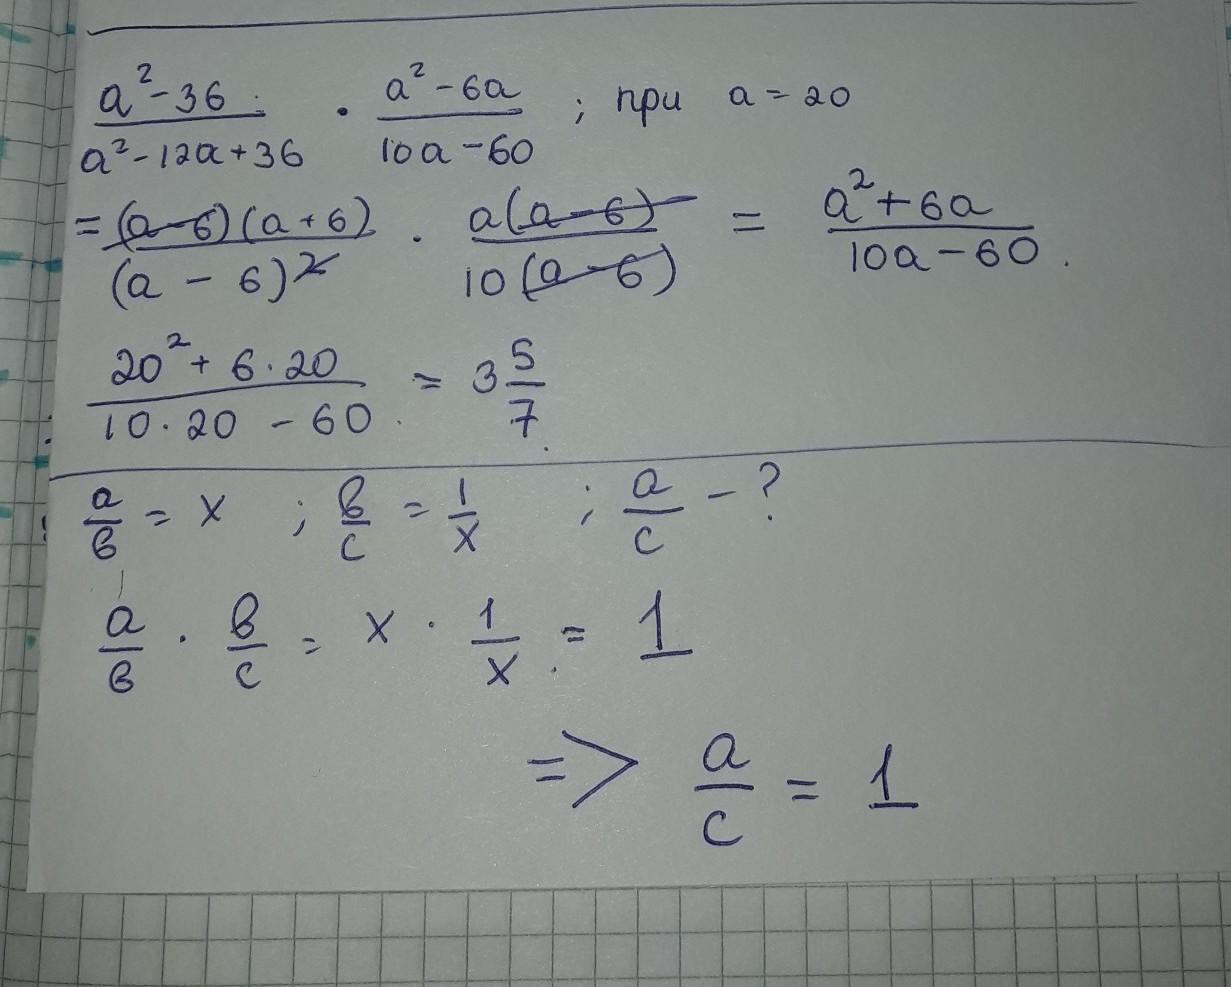 a²-36 / a²-12a+36 · a²-6a / 10a-60 ; при a=20
= (a-6)(a+6) / (a-6)² · a(a-6) / 10(a-6) = a²+6a / 10a-60.
20²+6·20 / 10·20-60 = 3 5/7.
a/в = x ; в/c = 1/x ; a/c - ?
a/в · в/c = x · 1/x = 1
=> a/c = 1